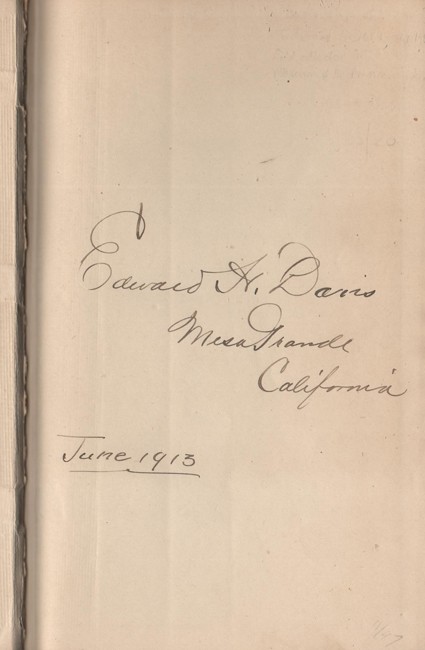 Edward H. Davis
Mesa Grande
California
June 1913